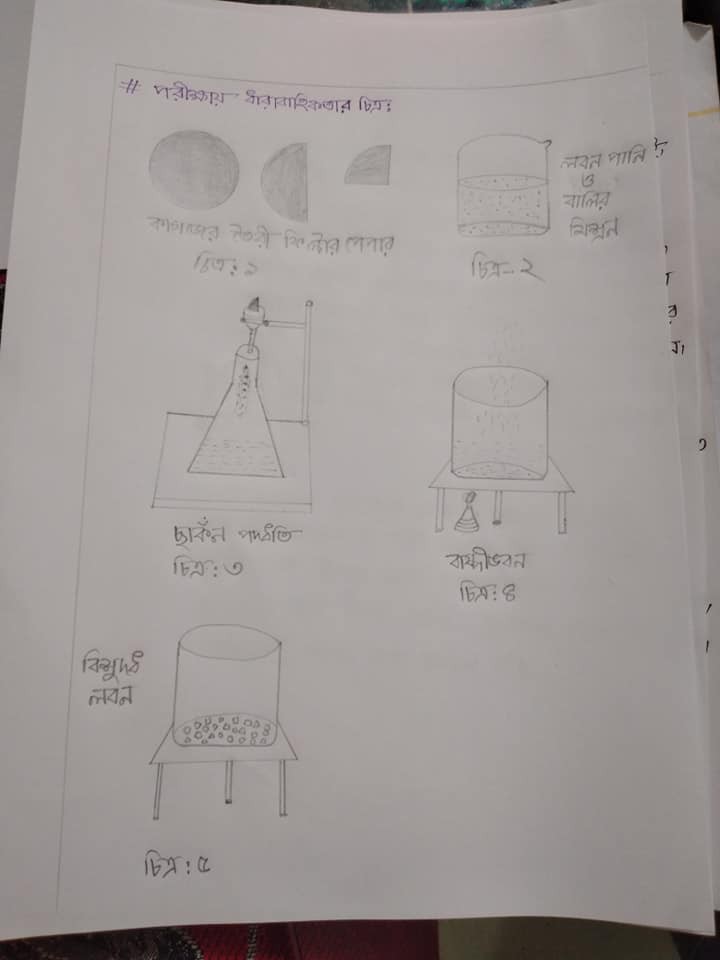 # পরীক্ষায় ধারাবাহিকতার চিত্র:
কাগজের তৈরী ফিল্টার পেপার
চিত্র: ১
লবন পানি
ও
বালির
মিশ্রন
চিত্র- ২
ছাকঁন পদ্ধতি
চিত্র: ৩
বাষ্পীভবন
চিত্র: ৪
বিশুদ্ধ
লবন
চিত্র: ৫